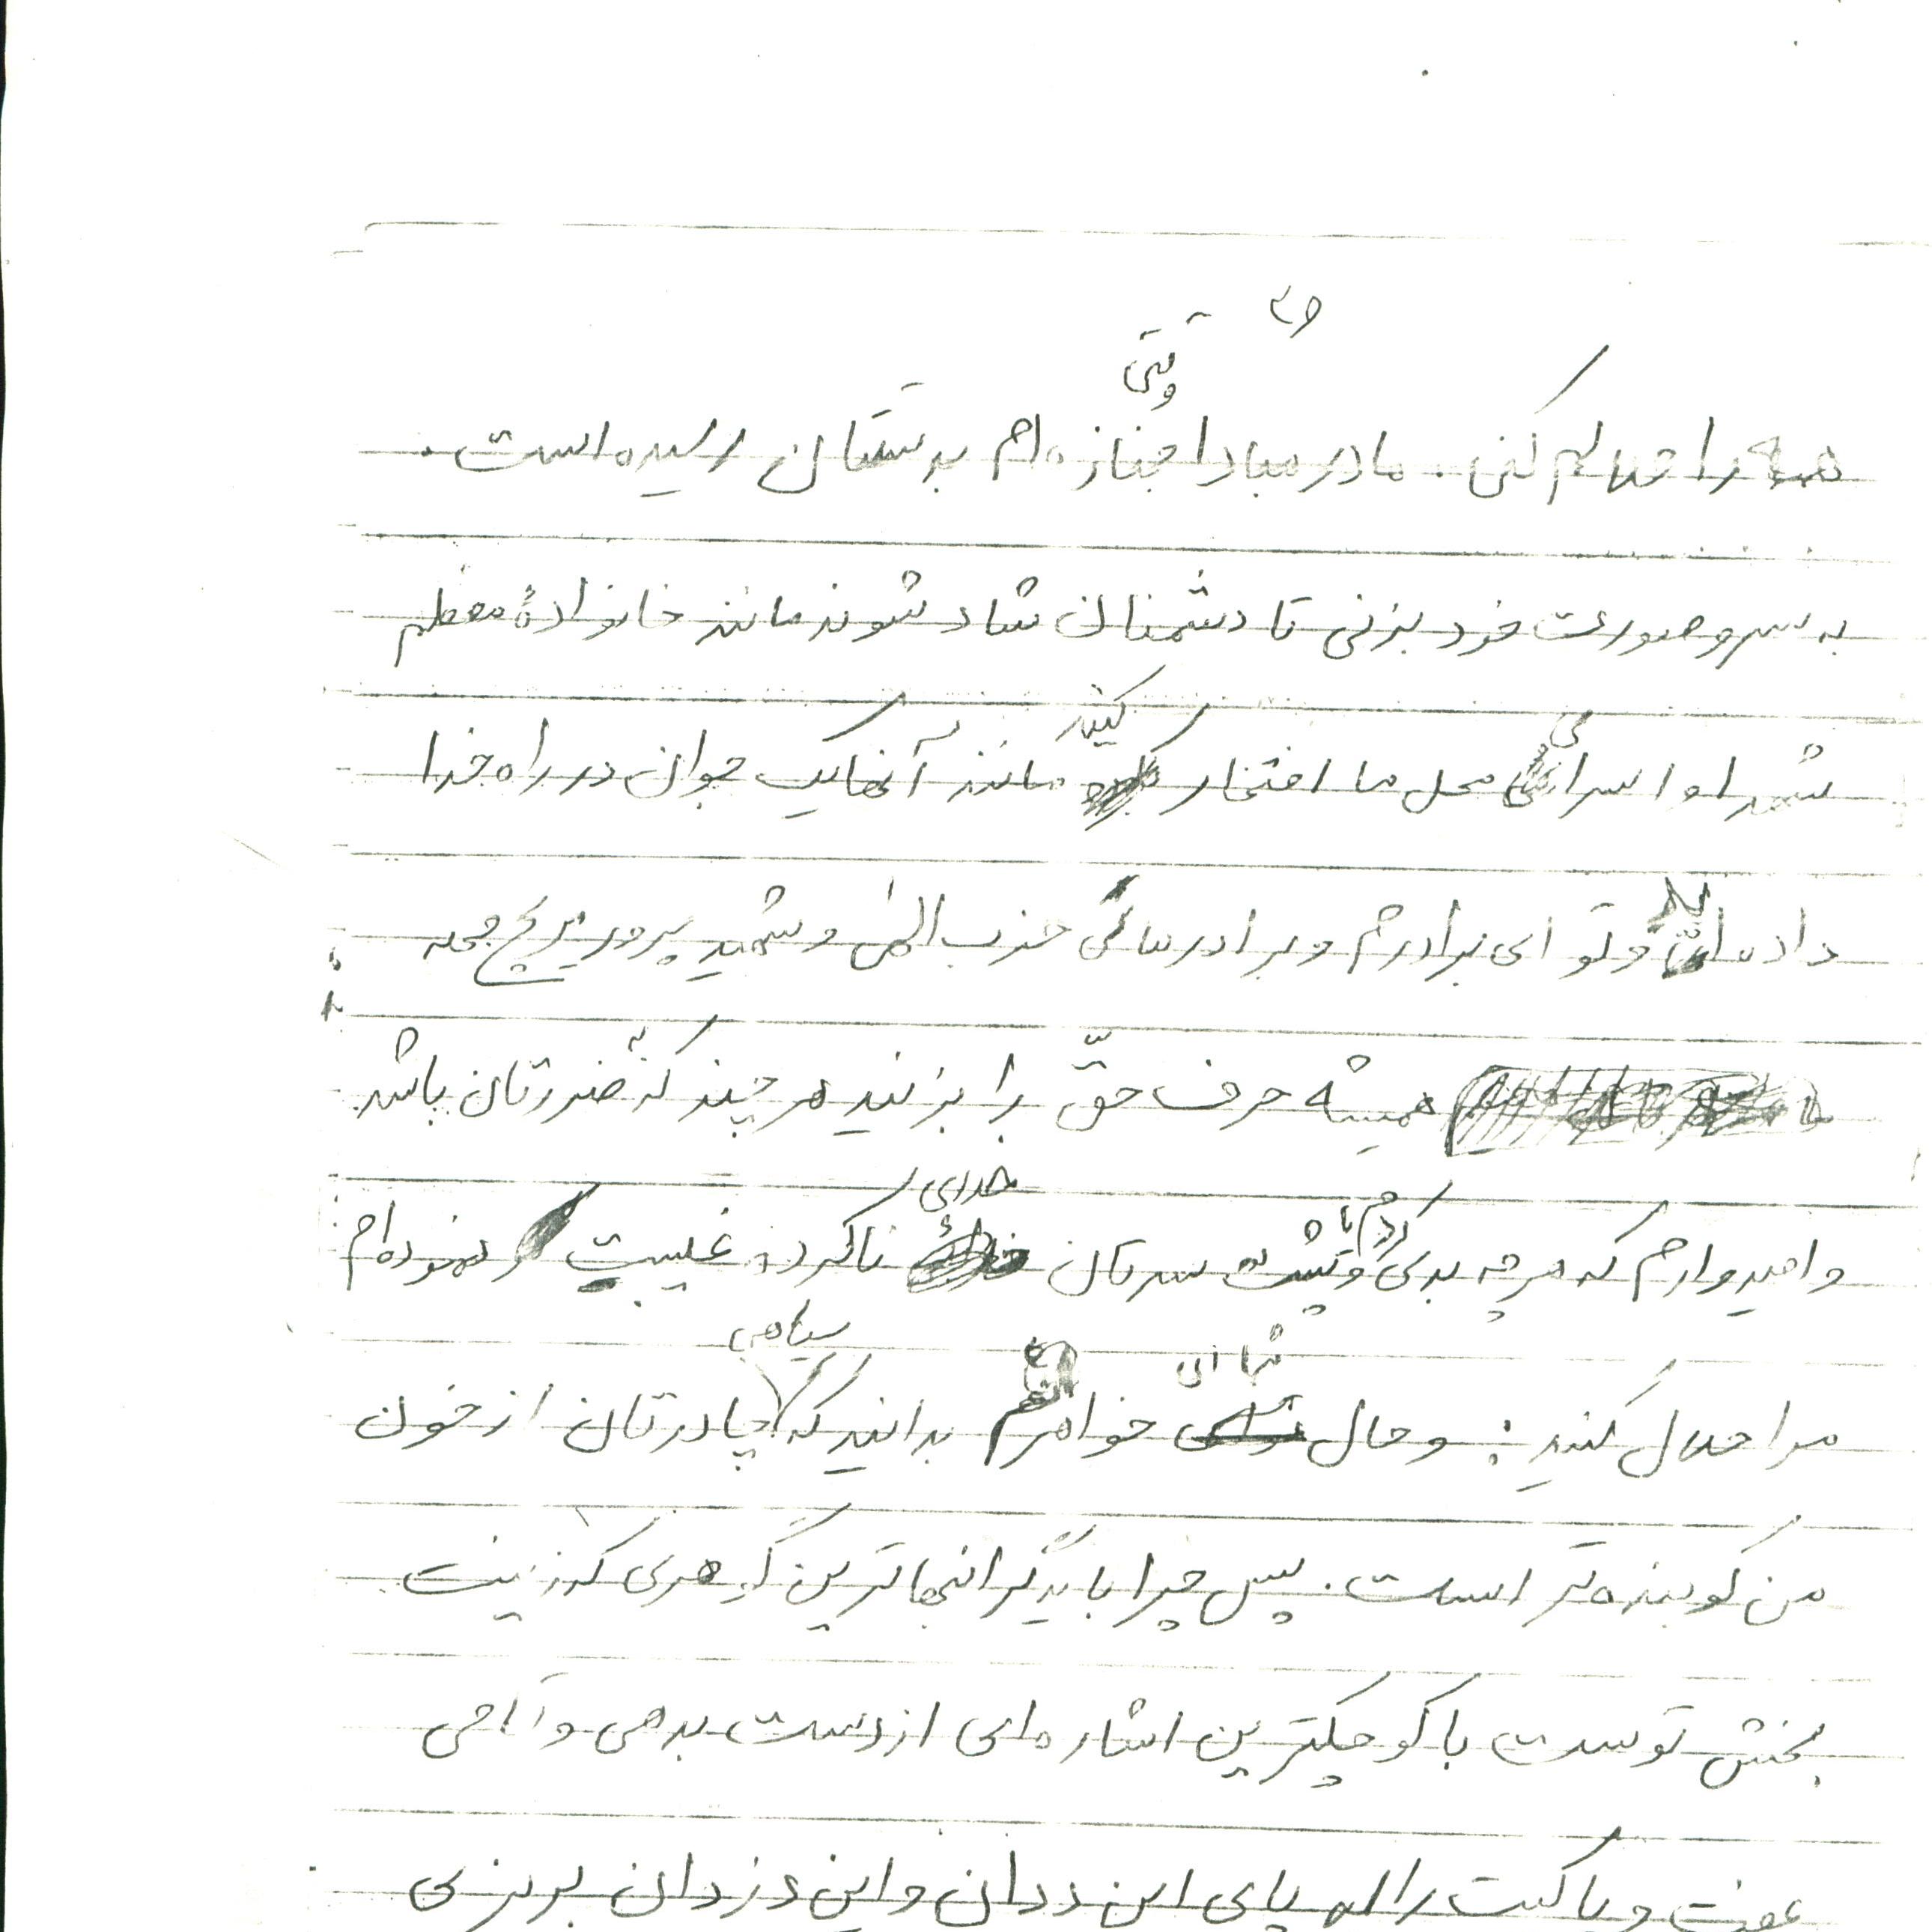 همه را حلالم کنی. مادر مبادا وقتی جنازه‌ام بدستتان رسیده است.
به سر و صورت خود بزنی تا دشمنان شاد شوند مانند خانوادهٔ معظم
شهدا و اسرای محل ما افتخار کنید مانند آنها یک جوان در راه خدا
داده‌اید و تو ای برادرم و برادرهای حزب الهی و شهید پرور
همیشه حرف حقّ را بزنید هر چند که به ضررتان باشد
و امیدوارم که هرچه بدی کردم یا پشت سرتان خدای ناکرده غیبت نموده‌ام
مرا حلال کنید. و حال شما ای خواهرم بدانید که سیاهی چادرتان از خون
من کوبنده‌تر است. پس چرا باید گرانبهاترین گوهری که زینت
بخش توست با کوچکترین اشاره‌ای از دست بدهی و
عفت و پاکیت را به پای این ددان و این دزدان بریزی